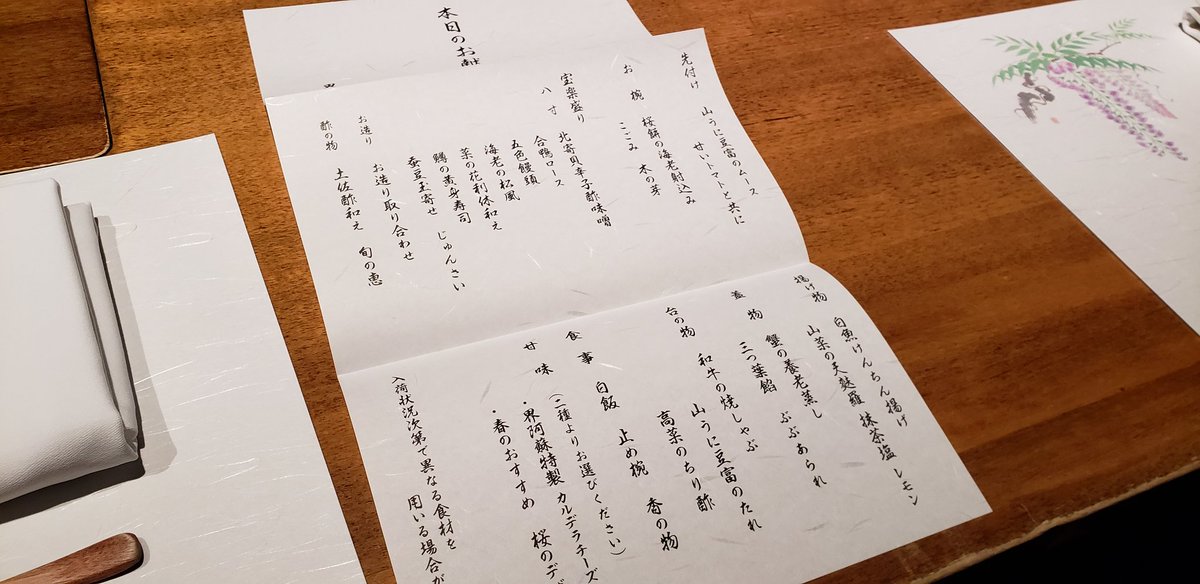 本日のお
先付け 山うに豆富のムース
せいトマトと共に
お椀 桜餅の海老射込み
こごみ 木の芽
宝楽盛り
八寸 北寄貝辛子酢味噌
合鴨ロース
五色饅頭
海老の松風
菜の花利休和え
鱒の黄身寿司
蚕豆玉寄せ じゅんさい
お造り お造り取り合わせ
酢の物 土佐酢和え 旬の恵
揚げ物 白魚けんちん揚げ
山菜の天麩羅 抹茶塩 レモン
蓋物 蟹の養老蒸し
三つ葉餡 ぶぶあられ
台の物 和牛の焼しゃぶ
山うに豆富のたれ
高菜のちり酢
食事 白飯 止め椀 香の物
甘味 (二種よりお選びください)
・界阿蘇特製 カルデラチーズ
・春のおすすめ 桜のデ
入荷状況次第で異なる食材を
用いる場合が